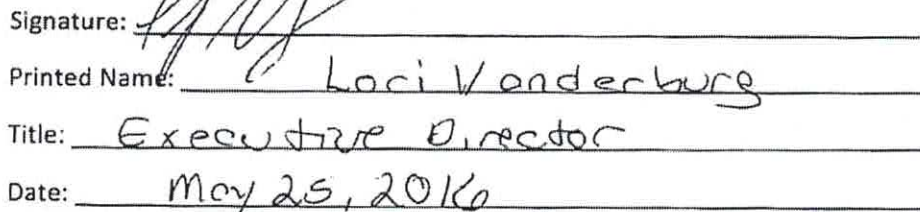 Signature:
Printed Name: Lori Vanderburg
Title: Executive Director
Date: May 25, 2016